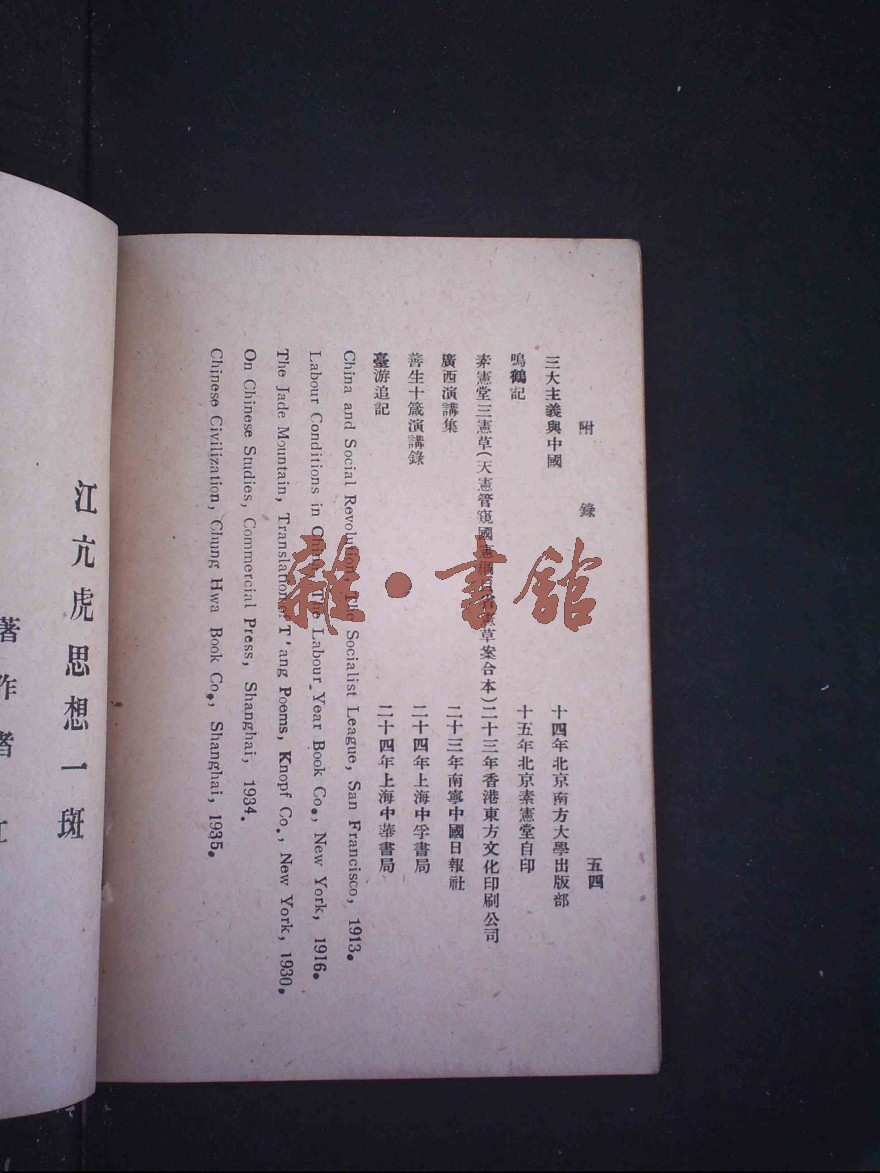 附　錄　五四
三大主義與中國　十四年北京南方大學出版部
鳴鶴記　十五年北京素憲堂自印
素憲堂三憲草(天憲管窺國憲　憲草案合本)二十三年香港東方文化印刷公司
廣西演講集　二十三年南寧中國日報社
善生十箴演講錄　二十四年上海中孚書局
臺游追記　二十四年上海中華書局
China and Social Revolution, The Socialist League, San Francisco, 1913.
Labour Conditions in China, The Labour Year Book Co., New York, 1916.
The Jade Mountain, Translation of T'ang Poems, Knopf Co., New York, 1930.
On Chinese Studies, Commercial Press, Shanghai, 1934.
Chinese Civilization, Chung Hwa Book Co., Shanghai, 1935.
江亢虎思想一斑
著作者　江
雜·書館